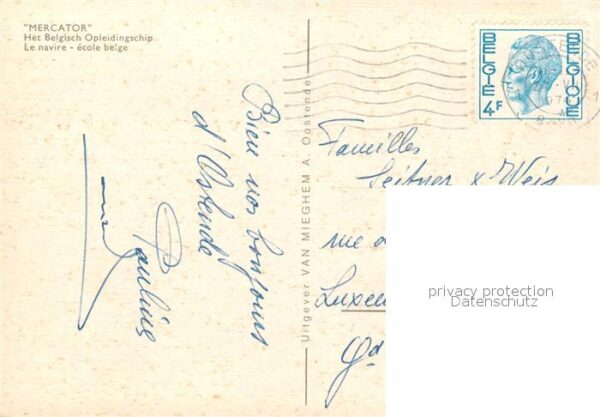 "MERCATOR"
Het Belgisch Opleidingschip
Le navire - école belge
Bien vos bonjours
d'Ostende
Pauline
Uitgever VAN MIEGHEM A. Oostende
BELGIË
BELGIQUE
4F
Familles
Seitner x Weis
rue
Luxem
Gd
privacy protection
Datenschutz